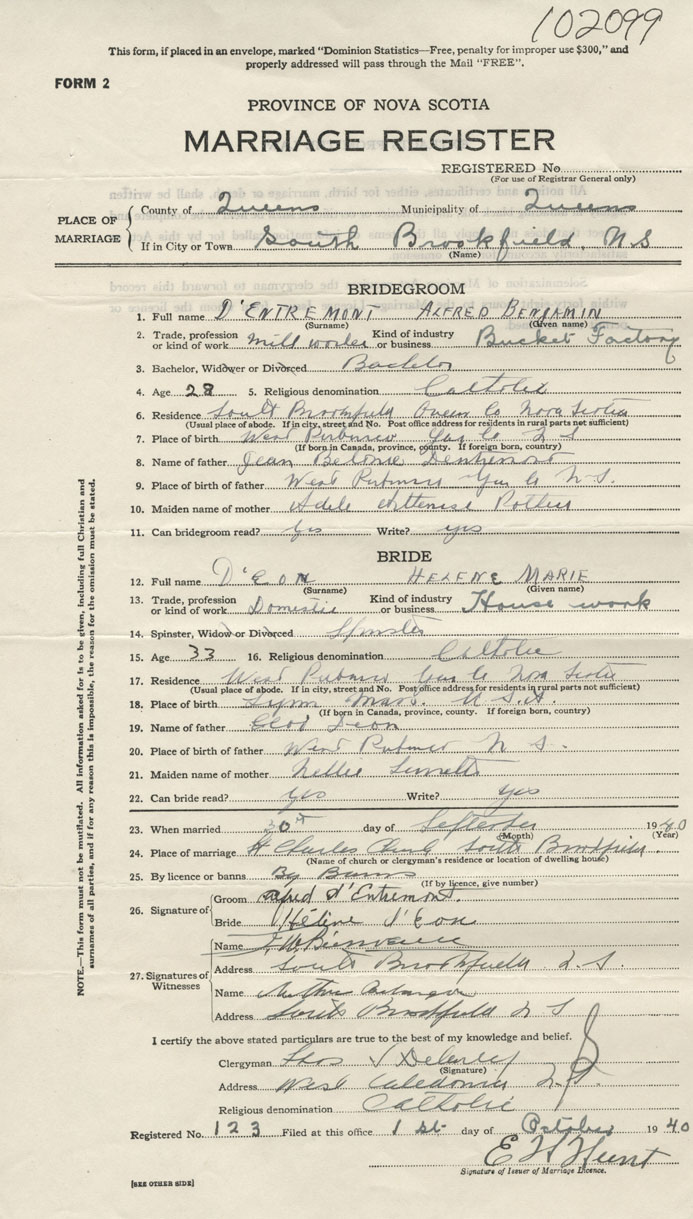 102099
This form, if placed in an envelope, marked "Dominion Statistics—Free, penalty for improper use $300," and
properly addressed will pass through the Mail "FREE".
FORM 2
PROVINCE OF NOVA SCOTIA
MARRIAGE REGISTER
REGISTERED No.
(For use of Registrar General only)
PLACE OF MARRIAGE
County of Queens Municipality of Queens
If in City or Town South Brookfield, N S
(Name)
BRIDEGROOM
1. Full name D'ENTREMONT ALFRED BENJAMIN
(Surname) (Given name)
2. Trade, profession or kind of work Mill worker Kind of industry or business Bucket Factory
3. Bachelor, Widower or Divorced Bachelor
4. Age 28 5. Religious denomination Catholic
6. Residence South Brookfield Queen Co Nova Scotia
(Usual place of abode. If in city, street and No. Post office address for residents in rural parts not sufficient)
7. Place of birth West Pubnico Yar Co N S
(If born in Canada, province, county. If foreign born, country)
8. Name of father Jean
9. Place of birth of father West Pubnico Yar Co N.S.
10. Maiden name of mother Adele Pothier
11. Can bridegroom read? Yes Write? yes
BRIDE
12. Full name D'EON HELENE MARIE
(Surname) (Given name)
13. Trade, profession or kind of work Domestic Kind of industry or business House work
14. Spinster, Widow or Divorced Spinster
15. Age 33 16. Religious denomination Catholic
17. Residence West Pubnico Yar Co Nova Scotia
(Usual place of abode. If in city, street and No. Post office address for residents in rural parts not sufficient)
18. Place of birth Lynn Mass. U.S.A.
(If born in Canada, province, county. If foreign born, country)
19. Name of father Deon
20. Place of birth of father West Pubnico N S.
21. Maiden name of mother Nellie
22. Can bride read? yes Write? yes
23. When married 30th day of September 1940
(Month) (Year)
24. Place of marriage St Charles South Brookfield
(Name of church or clergyman's residence or location of dwelling house)
25. By licence or banns By Banns
(If by licence, give number)
26. Signature of
Groom Alfred d'Entremont.
Bride Hélène d'Eon
27. Signatures of Witnesses
Name
Address South Brookfield N.S.
Name
Address South Brookfield N S
I certify the above stated particulars are true to the best of my knowledge and belief.
Clergyman
(Signature)
Address West Caledonia N.S.
Religious denomination Catholic
Registered No. 123 Filed at this office 1st day of October 1940
E H Hunt
Signature of Issuer of Marriage Licence.
[SEE OTHER SIDE]
NOTE.—This form must not be mutilated. All information asked for is to be given, including full Christian and
surnames of all parties, and if for any reason this is impossible, the reason for the omission must be stated.